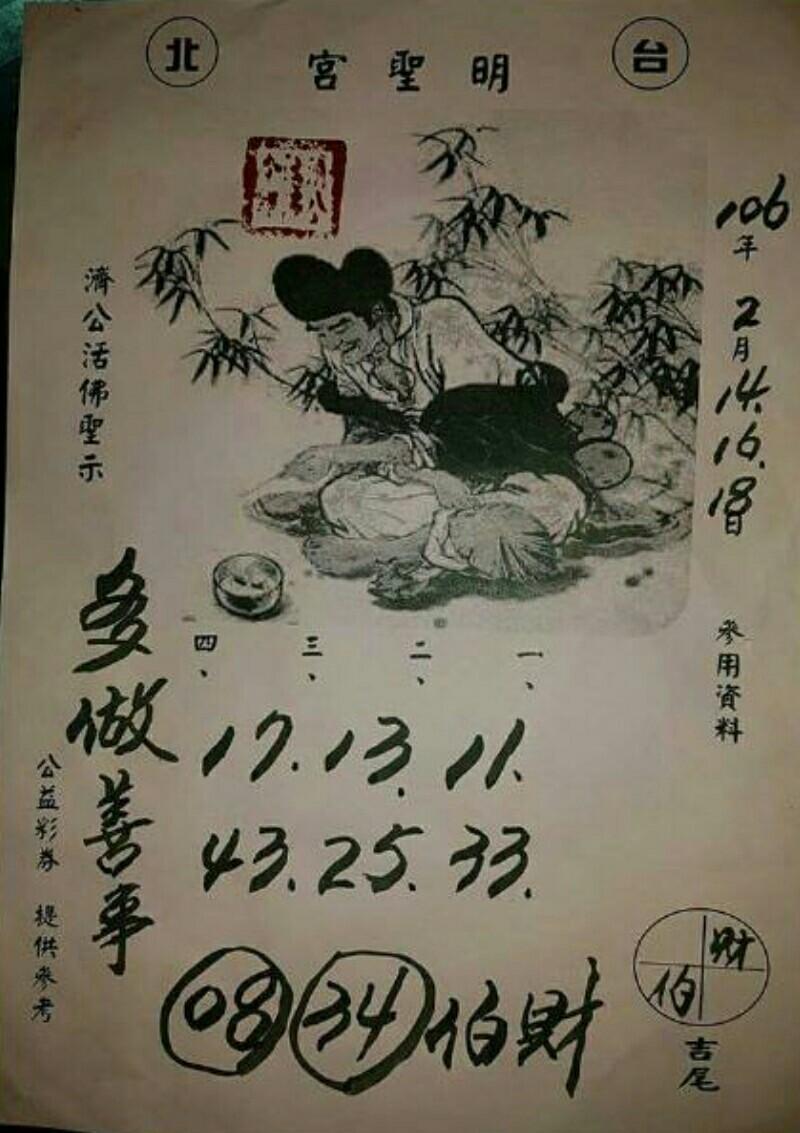 台北
明聖宮
106年2月14.16.18日
參用資料
一、
二、
三、
四、
11.13.17
33.25.43
財伯
34 08
濟公活佛聖示
多做善事
公益彩券 提供參考
財
伯
吉尾